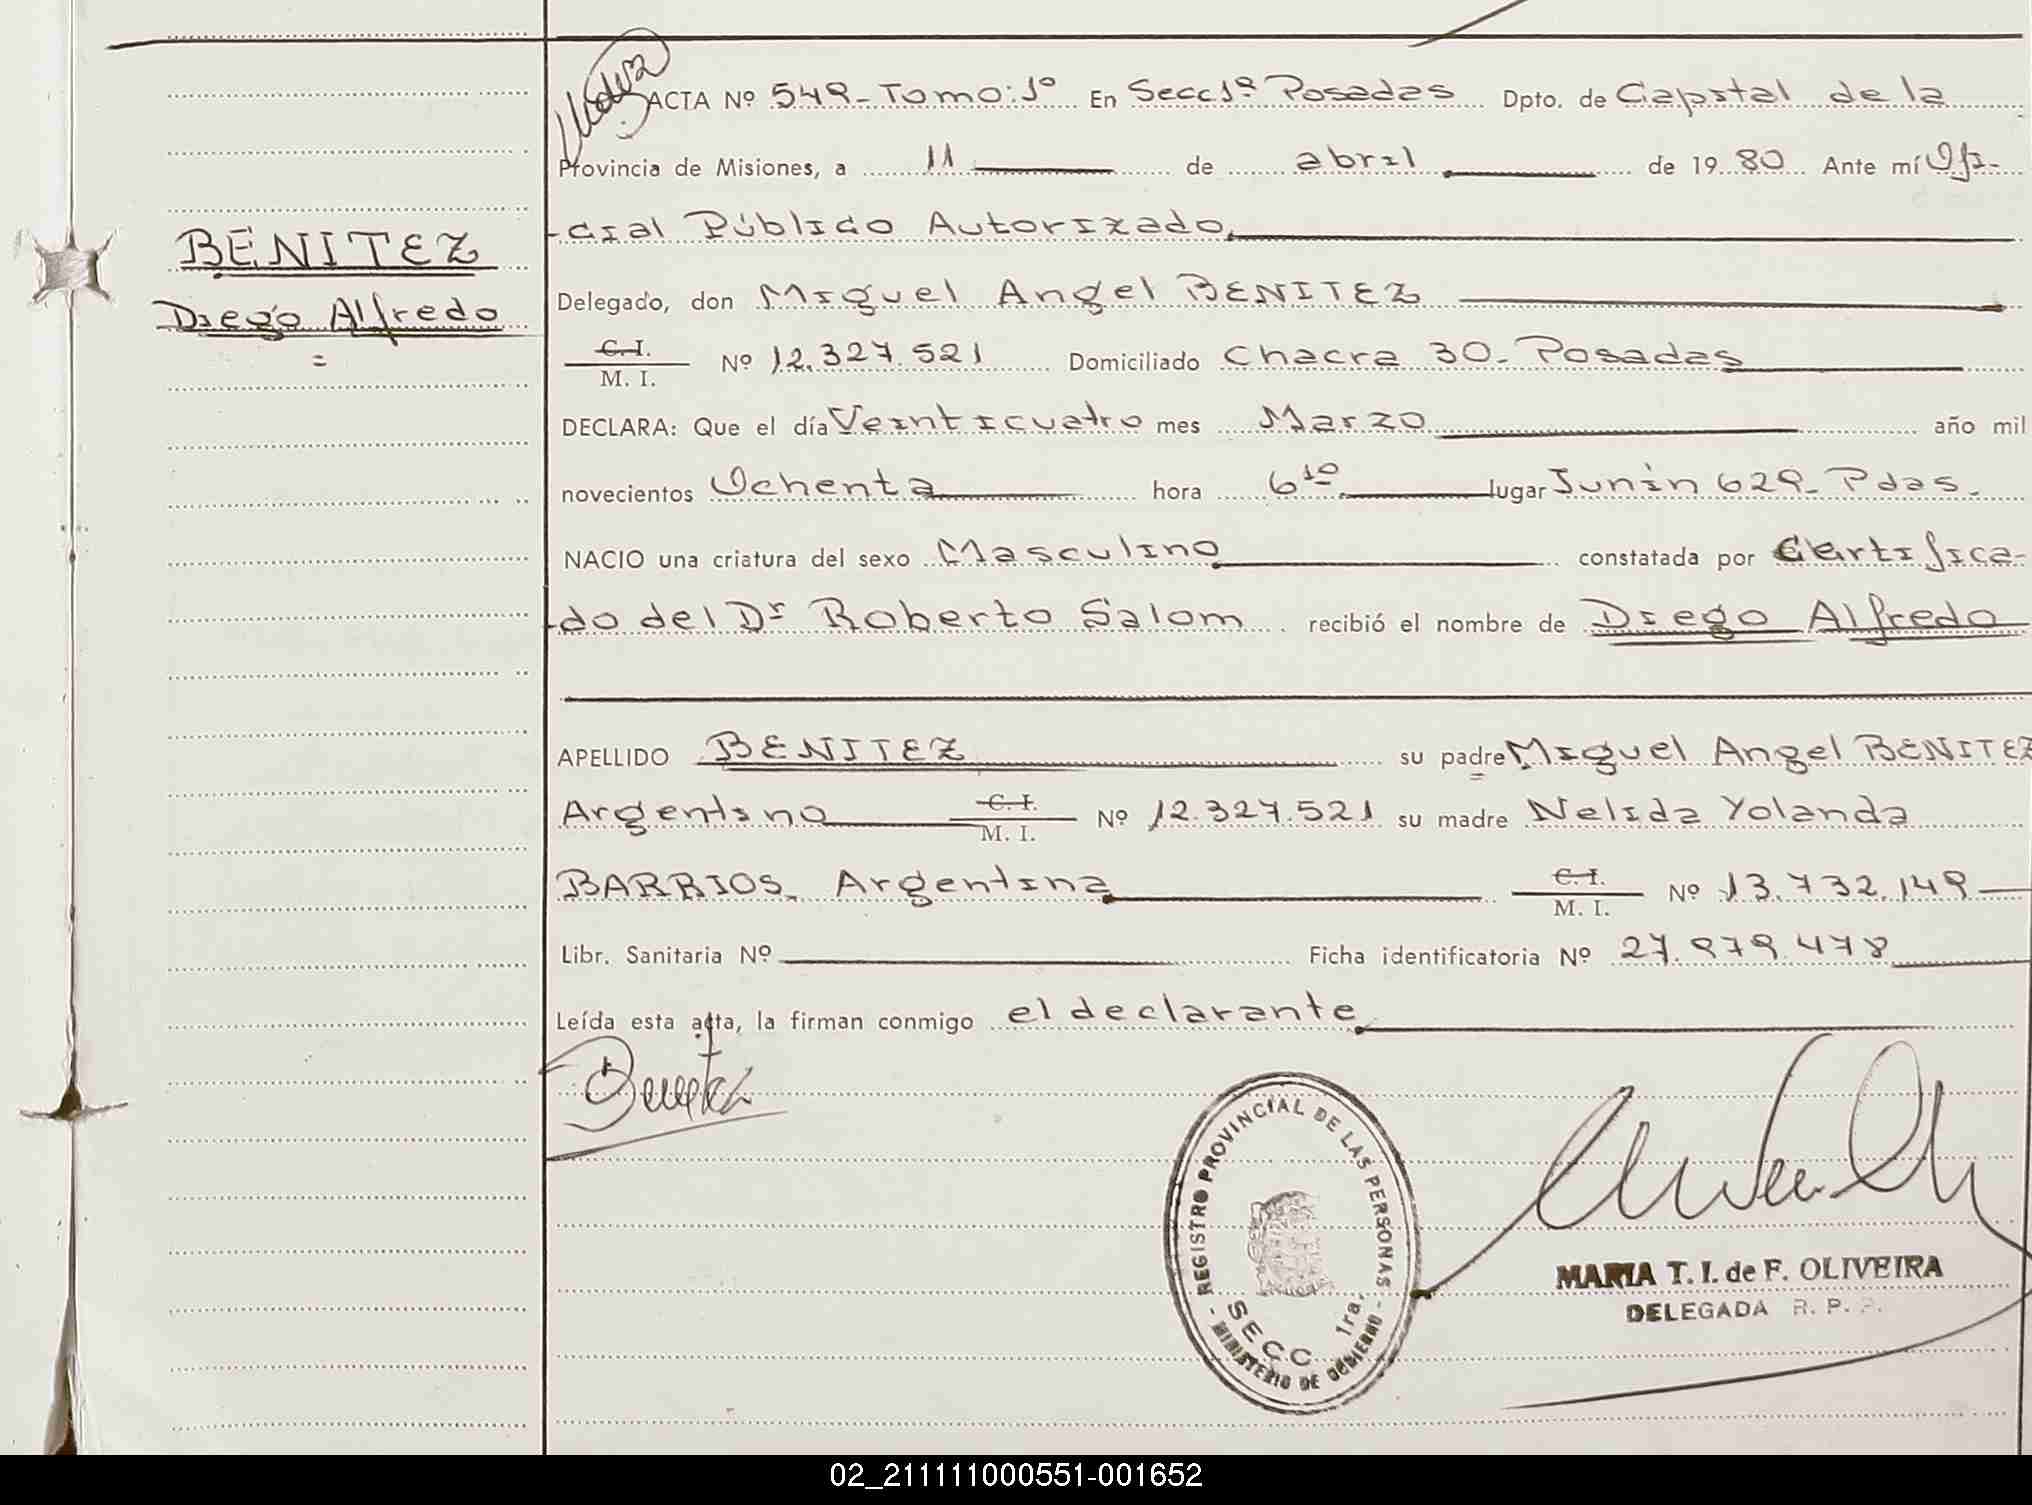 ACTA Nº 549_ Tomo: 1º En Secc 1ª Posadas Dpto. de Capital de la
Provincia de Misiones, a 11 de abril de 1980 Ante mí Ofi-
-cial Público Autorizado,
BENITEZ
Delegado, don Miguel Angel BENITEZ
Diego Alfredo
C. I.
M. I. Nº 12.327.521 Domiciliado Chacra 30_ Posadas
DECLARA: Que el día Veinticuatro mes Marzo año mil
novecientos Ochenta hora 6 10 lugar Junín 629_ Pdas.
NACIO una criatura del sexo Masculino constatada por Certifica-
-do del Dr Roberto Salom recibió el nombre de Diego Alfredo
APELLIDO BENITEZ su padre Miguel Angel BENITEZ
Argentino C. I. M. I. Nº 12.327.521 su madre Nelida Yolanda
BARRIOS_ Argentina C. I. M. I. Nº 13.732.149
Libr. Sanitaria Nº Ficha identificatoria Nº 27.979.478
Leída esta acta, la firman conmigo el declarante
REGISTRO PROVINCIAL DE LAS PERSONAS
SECC 1ra.
- MINISTERIO DE GOBIERNO -
MARIA T. I. de F. OLIVEIRA
DELEGADA R. P. P.
02_211111000551-001652